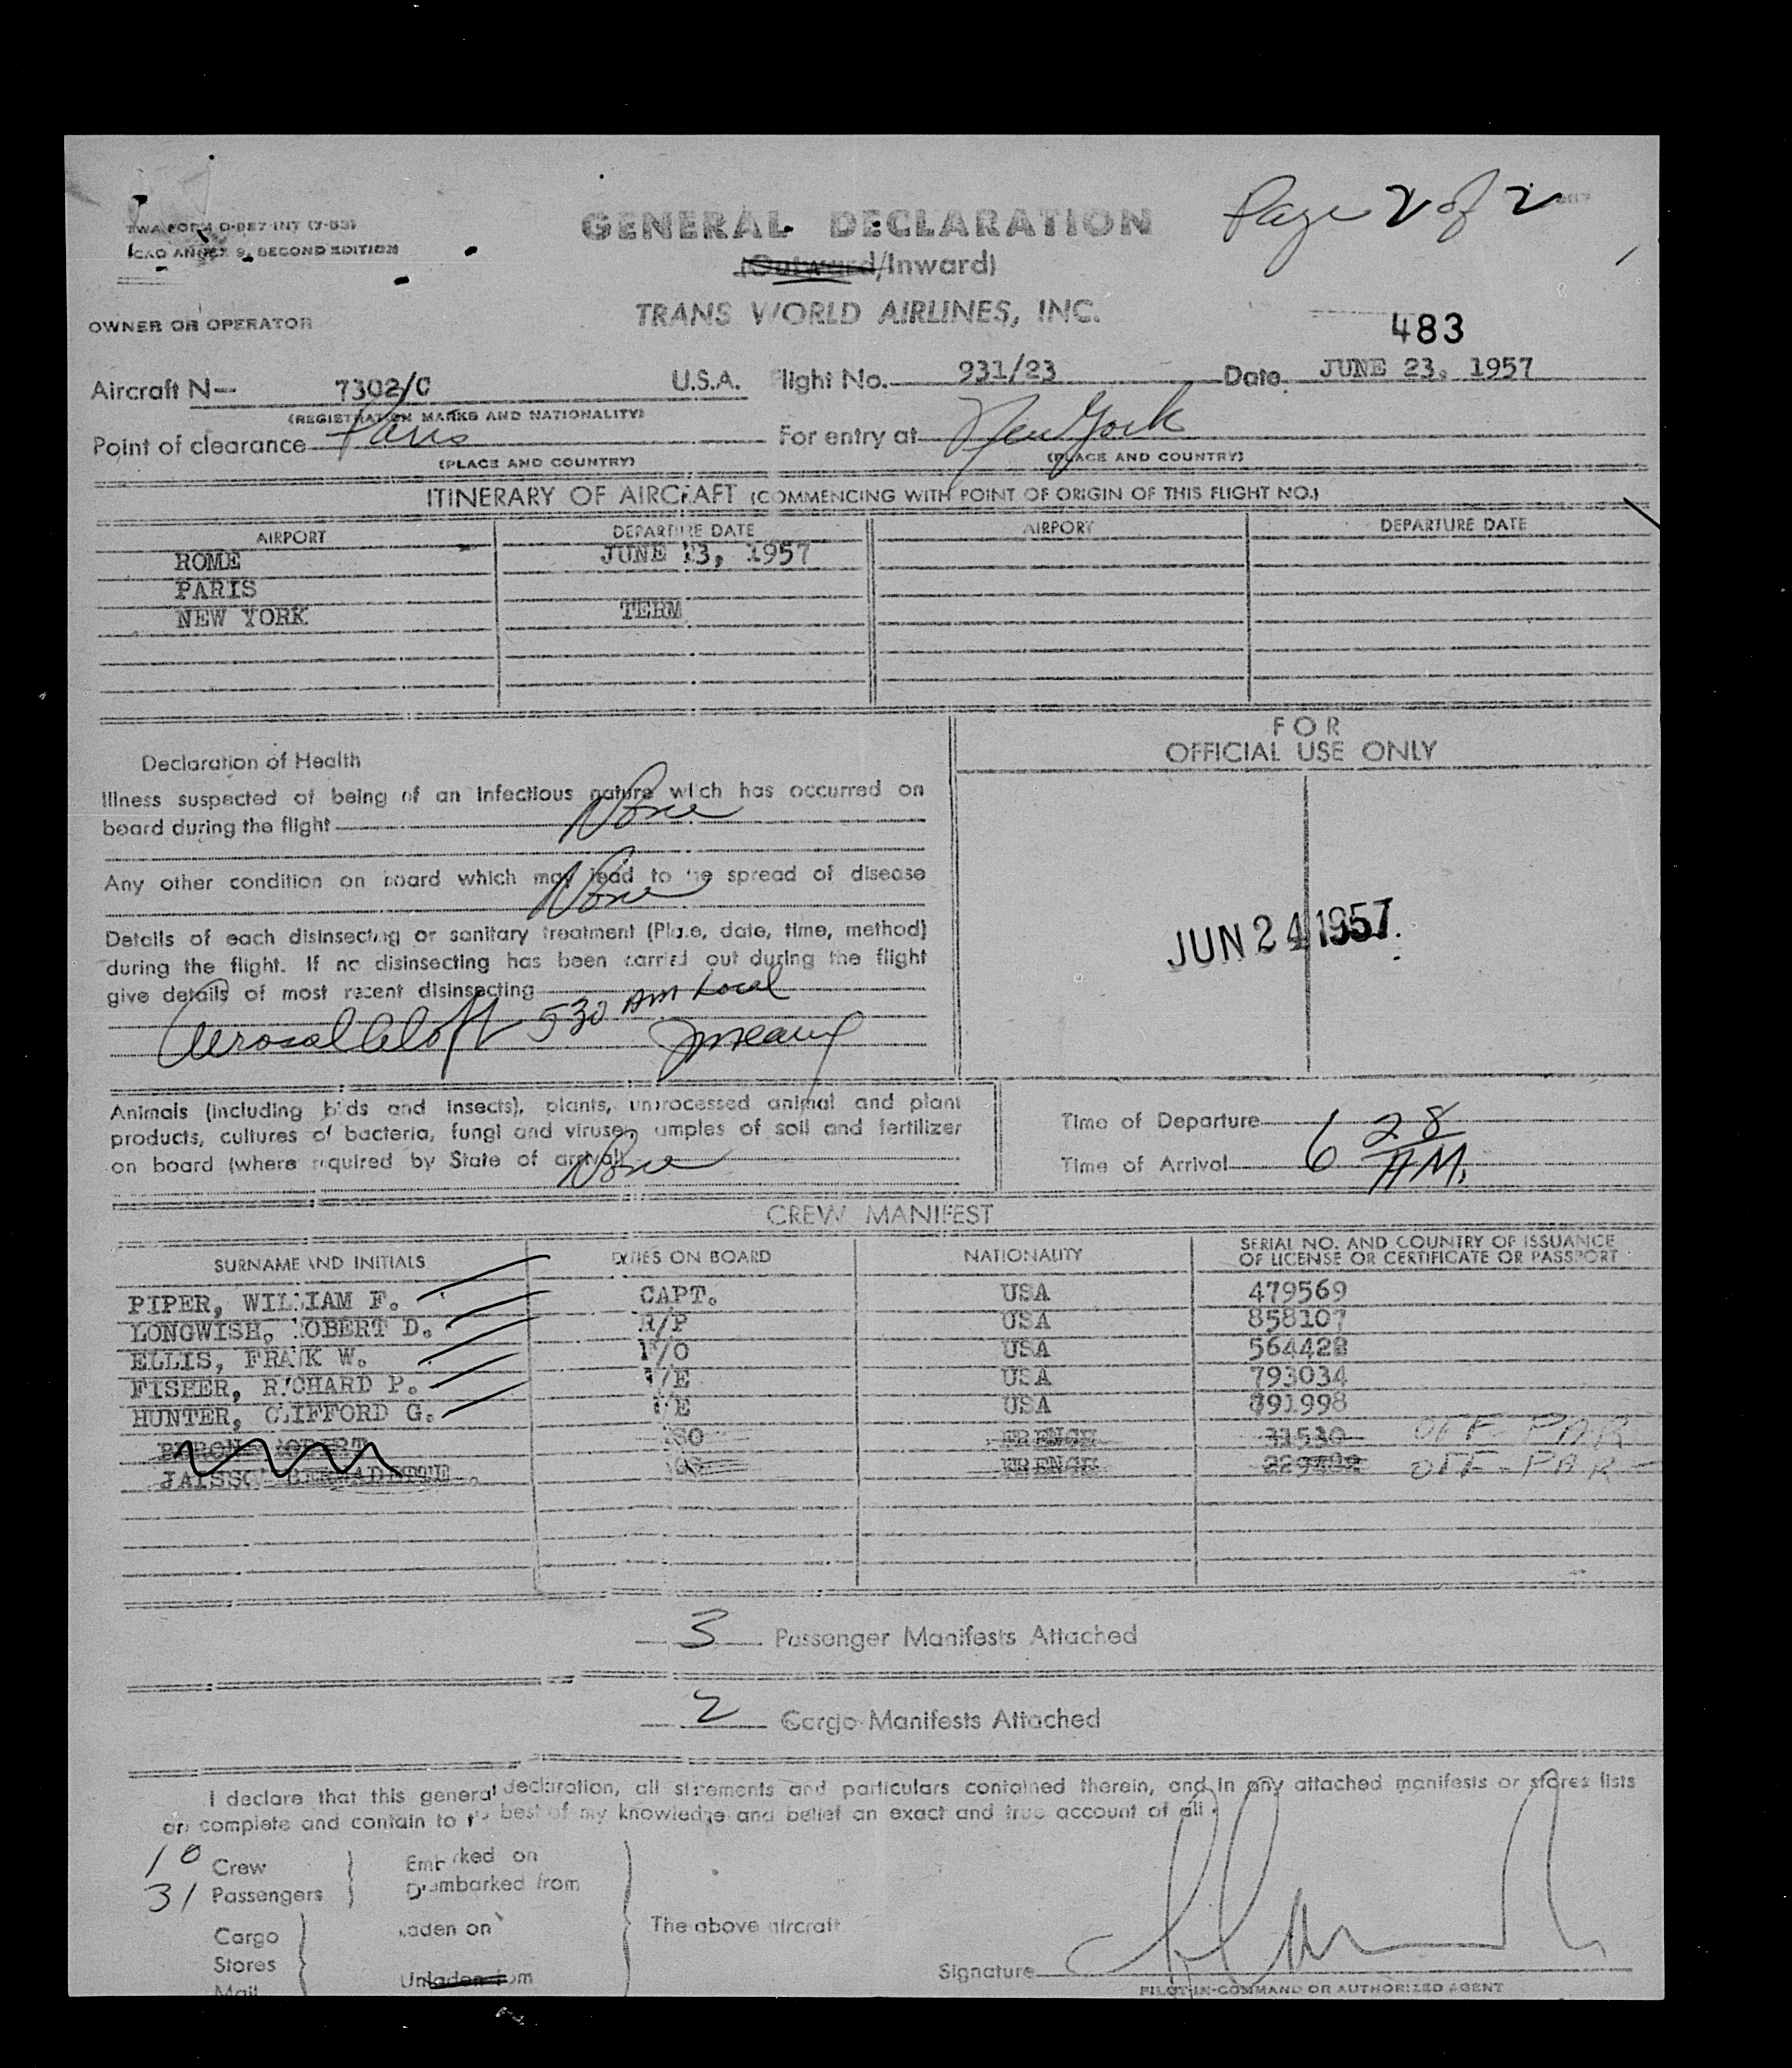 Page 2 of 2
TWA FORM O-887-INT (7-53)
ICAO ANNEX 9, SECOND EDITION
GENERAL DECLARATION
(Outward/Inward)
TRANS WORLD AIRLINES, INC.
OWNER OR OPERATOR
483
Aircraft N- 7302/C U.S.A. Flight No. 931/23 Date JUNE 23, 1957
(REGISTRATION MARKS AND NATIONALITY)
Point of clearance Paris For entry at New York
(PLACE AND COUNTRY) (PLACE AND COUNTRY)
ITINERARY OF AIRCRAFT (COMMENCING WITH POINT OF ORIGIN OF THIS FLIGHT NO.)
AIRPORT DEPARTURE DATE AIRPORT DEPARTURE DATE
ROME JUNE 23, 1957
PARIS
NEW YORK TERM
FOR
OFFICIAL USE ONLY
Declaration of Health
Illness suspected of being of an infectious nature which has occurred on
board during the flight None
Any other condition on board which may lead to the spread of disease
None
Details of each disinsecting or sanitary treatment (Place, date, time, method)
during the flight. If no disinsecting has been carried out during the flight
give details of most recent disinsecting
Aerosol aloft 530 AM Local
JUN 24 1957
Animals (including birds and insects), plants, unprocessed animal and plant
products, cultures of bacteria, fungi and viruses, samples of soil and fertilizer
on board (where required by State of arrival) None
Time of Departure
Time of Arrival 6 28 AM.
CREW MANIFEST
SURNAME AND INITIALS DUTIES ON BOARD NATIONALITY SERIAL NO. AND COUNTRY OF ISSUANCE
OF LICENSE OR CERTIFICATE OR PASSPORT
PIPER, WILLIAM F. CAPT. USA 479569
LONGWISH, ROBERT D. R/P USA 858107
ELLIS, FRANK W. F/O USA 564428
FISHER, RICHARD P. F/E USA 793034
HUNTER, CLIFFORD G. F/E USA 891998
ROBERT FRENCH 31530 OFF-PAR
BERNADETTE FRENCH OFF-PAR
3 Passenger Manifests Attached
2 Cargo Manifests Attached
I declare that this general declaration, all statements and particulars contained therein, and in any attached manifests or stores lists
are complete and contain to the best of my knowledge and belief an exact and true account of all
10 Crew Embarked on
31 Passengers Disembarked from
Cargo Laden on The above aircraft
Stores
Mail Unladen from
Signature
PILOT-IN-COMMAND OR AUTHORIZED AGENT